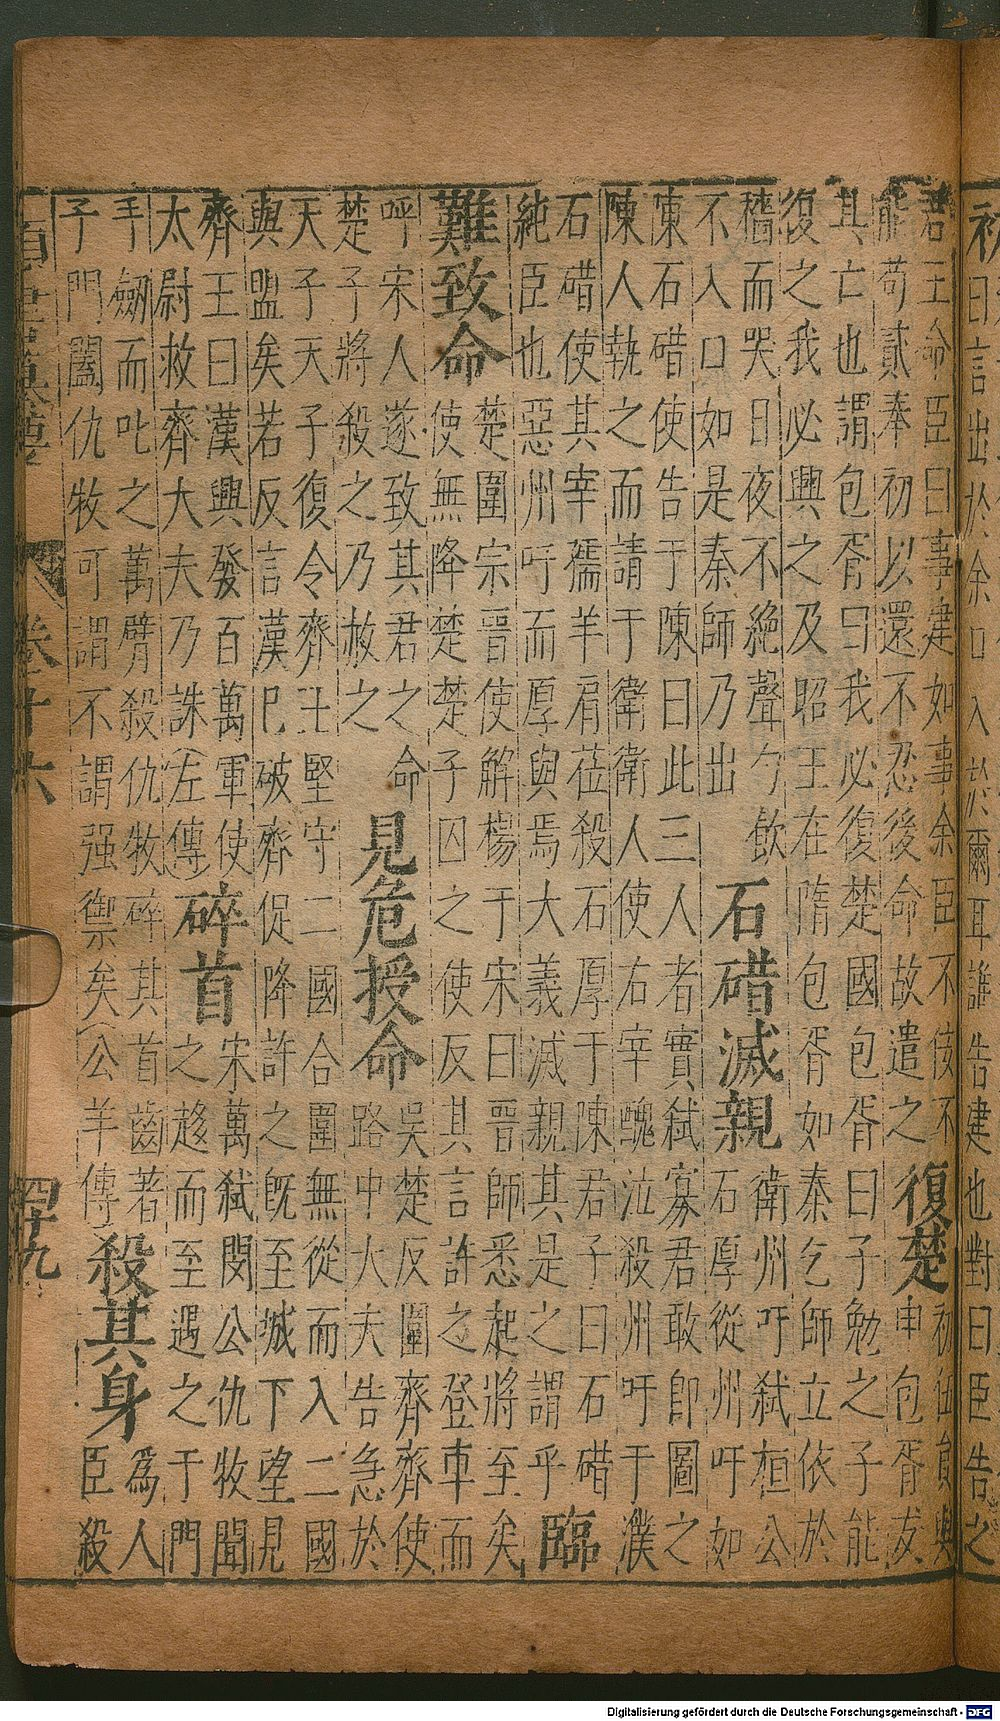 初曰言出於余口入於爾耳誰告建也對曰臣告之
君王命臣曰事建如事余臣不佞不
能苟貳奉初以還不忍後命故遣之
復楚
初伍負與
申包胥友
其亡也謂包胥曰我必復楚國包胥曰子勉之子能
復之我必興之及昭王在隋包胥如秦乞師立依於
牆而哭日夜不絶聲勺飲
不入口如是秦師乃出
石碏滅親
衛州吁弑桓公
石厚從州吁如
陳石碏使告于陳曰此三人者實弑寡君敢即圖之
陳人執之而請于衛衛人使右宰醜泣殺州吁于濮
石碏使其宰獳羊肩莅殺石厚于陳君子曰石碏
純臣也惡州吁而厚與焉大義滅親其是之謂乎
臨
難致命
楚圍宗晉使解楊于宋曰晉師悉起將至矣
使無降楚楚子囚之使反其言許之登車而
呼宋人遂致其君之命
楚子將殺之乃赦之
見危授命
吳楚反圍齊齊使
路中大夫告急於
天子天子復令齊王堅守二國合圍無從而入二國
與盟矣若反言漢已破齊促降許之既至城下望見
齊王曰漢興發百萬軍使
太尉救齊大夫乃誅(左傳)
碎首
宋萬弑閔公仇牧聞
之趍而至遇之于門
手劒而叱之萬臂殺仇牧碎其首齒著
子門闔仇牧可謂不謂强禦矣(公羊傳)
殺其身
為人
臣殺
卷十六
四十九
Digitalisierung gefördert durch die Deutsche Forschungsgemeinschaft - DFG